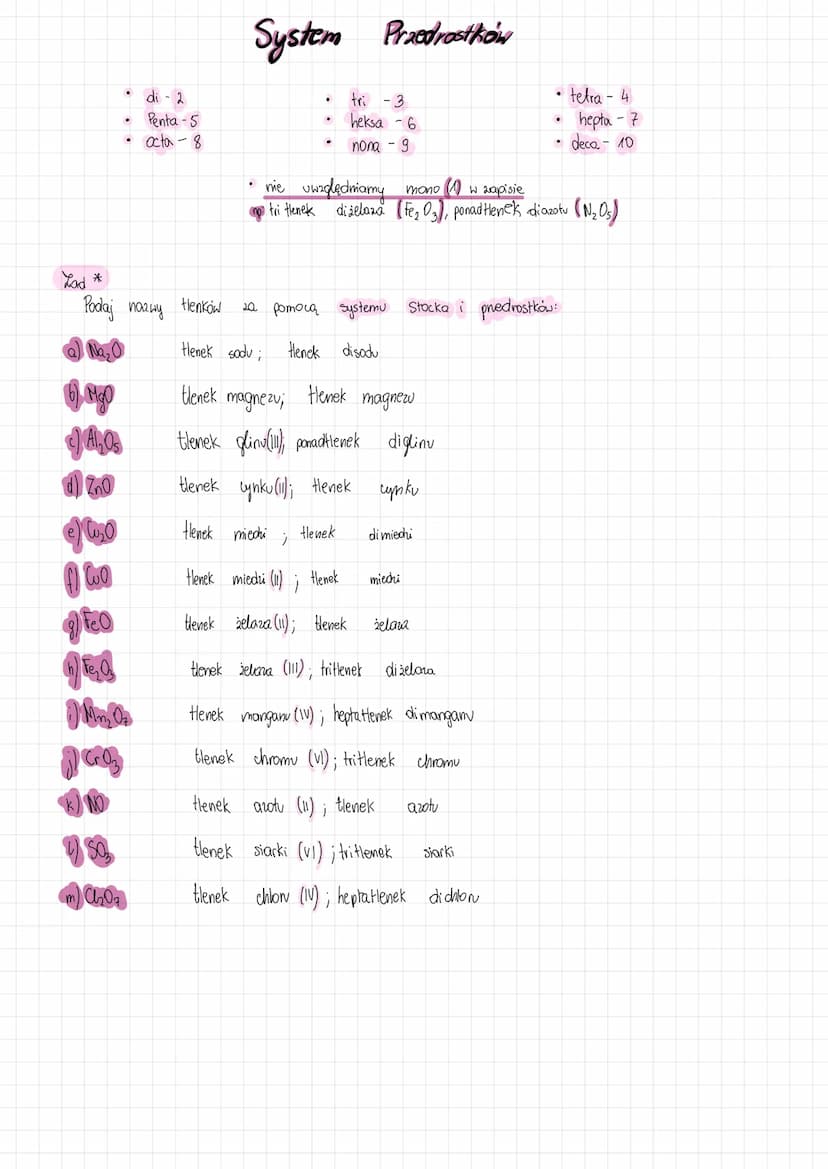 System Przedrostków
• di - 2 • tri - 3 • tetra - 4
• Penta - 5 • heksa - 6 • hepta - 7
• octa - 8 • nona - 9 • deca - 10
• nie uwzględniamy mono (1) w zapisie
np tritlenek diżelaza (Fe₂O₃), ponadtlenek diazotu (N₂O₅)
Zad *
Podaj nazwy tlenków za pomocą systemu Stocka i przedrostków:
a) Na₂O tlenek sodu; tlenek disodu
b) MgO tlenek magnezu; tlenek magnezu
c) Al₂O₅ tlenek glinu(III); ponadtlenek diglinu
d) ZnO tlenek cynku(II); tlenek cynku
e) Cu₂O tlenek miedzi ; tlenek dimiedzi
f) CuO tlenek miedzi (II) ; tlenek miedzi
g) FeO tlenek żelaza (II); tlenek żelaza
h) Fe₂O₃ tlenek żelaza (III) ; tritlenek diżelaza
i) Mn₂O₇ tlenek manganu (IV) ; heptatlenek dimanganu
j) CrO₃ tlenek chromu (VI) ; tritlenek chromu
k) NO tlenek azotu (II) ; tlenek azotu
l) SO₃ tlenek siarki (VI) ; tritlenek siarki
m) Cl₂O₇ tlenek chloru (IV) ; heptatlenek dichloru